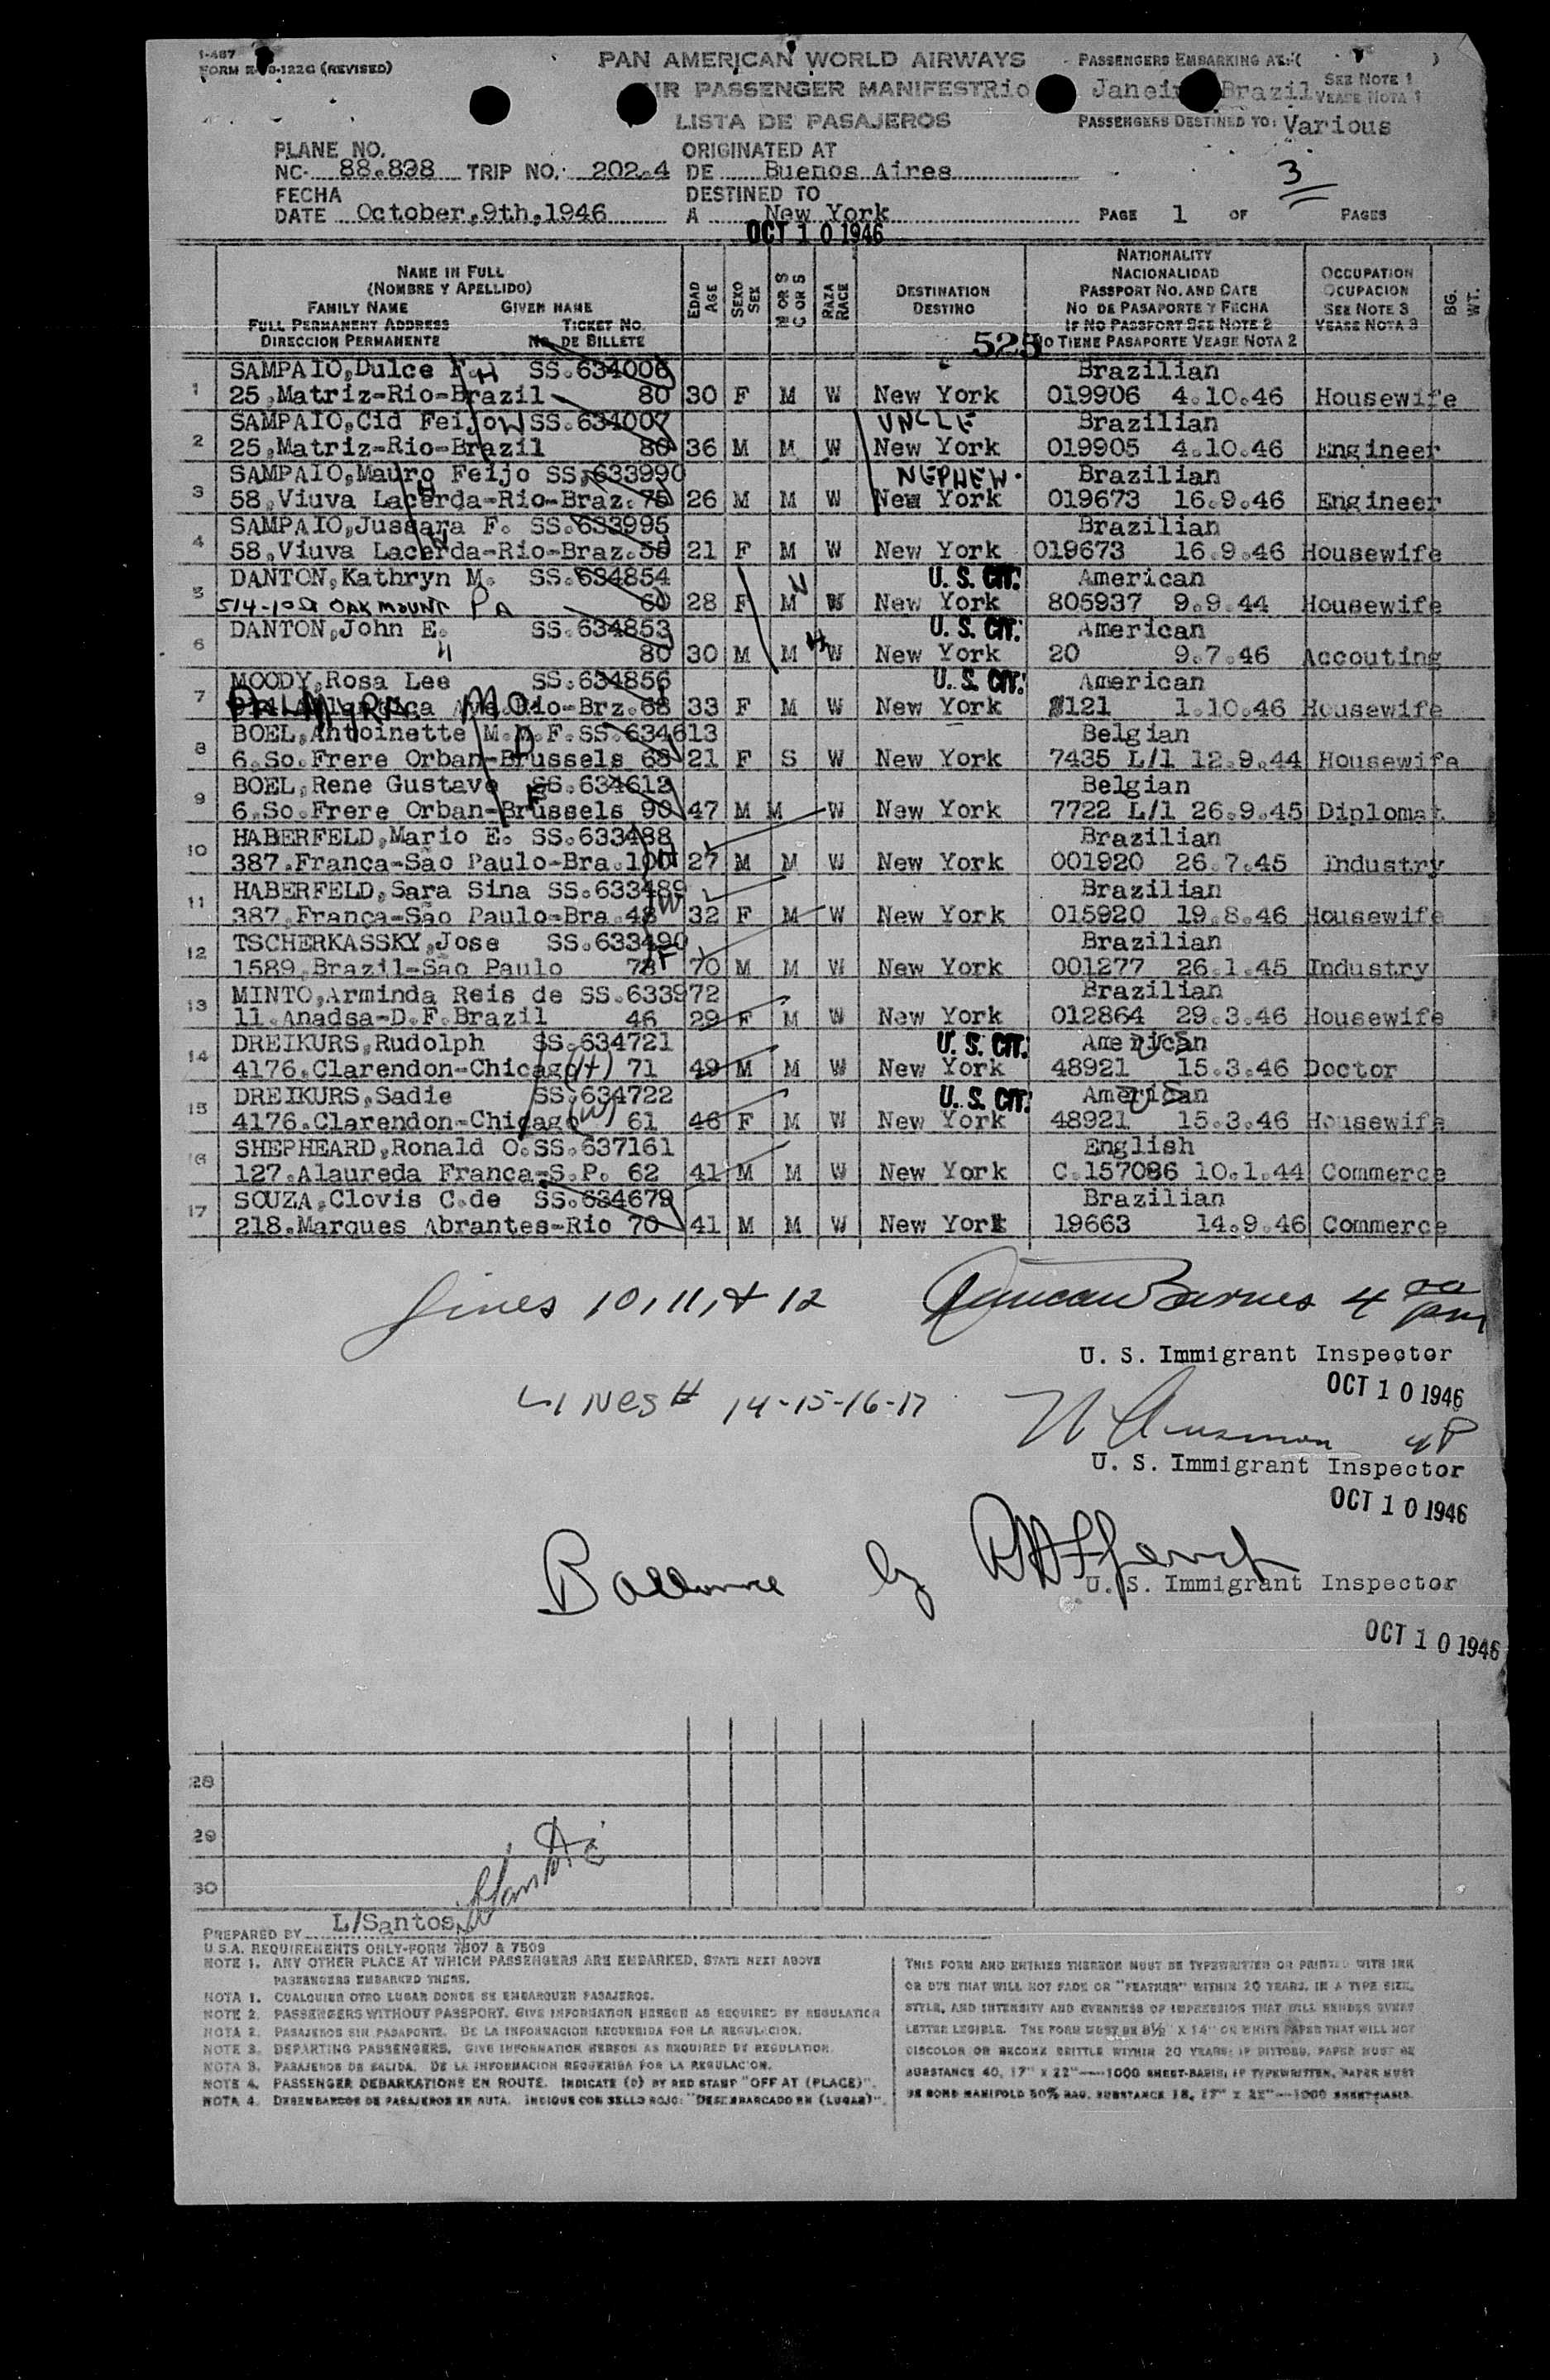 1-487
FORM (REVISED)
PAN AMERICAN WORLD AIRWAYS
AIR PASSENGER MANIFEST
LISTA DE PASAJEROS
PASSENGERS EMBARKING AT:( )
Rio Janeiro Brazil
SEE NOTE 1
VEASE NOTA 1
PASSENGERS DESTINED TO: Various
PLANE NO.
NC- 88.838 TRIP NO. 202.4
ORIGINATED AT
DE Buenos Aires
3
FECHA
DATE October,9th,1946
DESTINED TO
A New York
PAGE 1 OF PAGES
OCT 10 1946
NAME IN FULL
(NOMBRE Y APELLIDO)
FAMILY NAME GIVEN NAME
FULL PERMANENT ADDRESS TICKET NO.
DIRECCION PERMANENTE No. DE BILLETE
EDAD AGE
SEXO SEX
M OR S C OR S
RAZA RACE
DESTINATION
DESTINO
NATIONALITY
NACIONALIDAD
PASSPORT NO. AND DATE
NO DE PASAPORTE Y FECHA
IF NO PASSPORT SEE NOTE 2
NO TIENE PASAPORTE VEASE NOTA 2
525
OCCUPATION
OCUPACION
SEE NOTE 3
VEASE NOTA 3
BG. WT.
SAMPAIO,Dulce F. SS.634006 Brazilian
1 25,Matriz-Rio-Brazil 80 30 F M W New York 019906 4.10.46 Housewife
SAMPAIO,Cid Feijo W SS.634007 UNCLE Brazilian
2 25,Matriz-Rio-Brazil 80 36 M M W New York 019905 4.10.46 Engineer
SAMPAIO,Mauro Feijo SS.633990 NEPHEW. Brazilian
3 58,Viuva Lacerda-Rio-Braz.75 26 M M W New York 019673 16.9.46 Engineer
SAMPAIO,Jussara F. SS.633995 Brazilian
4 58,Viuva Lacerda-Rio-Braz.58 21 F M W New York 019673 16.9.46 Housewife
DANTON,Kathryn M. SS.634854 U. S. CIT. American
5 514-10th OAKMOUNT PA 60 28 F M W New York 805937 9.9.44 Housewife
DANTON,John E. SS.634853 U. S. CIT. American
6 " 80 30 M M H W New York 20 9.7.46 Accouting
MOODY,Rosa Lee SS.634856 U. S. CIT. American
7 PALMYRA MO. Rio-Brz.68 33 F M W New York 121 1.10.46 Housewife
BOEL,Antoinette M.D.F.SS.634613 Belgian
8 6.So.Frere Orban-Brussels 68 21 F S W New York 7435 L/1 12.9.44 Housewife
BOEL,Rene Gustave F SS.634612 Belgian
9 6.So.Frere Orban-Brussels 90 47 M M W New York 7722 L/1 26.9.45 Diplomat
HABERFELD,Mario E. SS.633488 Brazilian
10 387.Franca-São Paulo-Bra.100 H 27 M M W New York 001920 26.7.45 Industry
HABERFELD,Sara Sina SS.633489 Brazilian
11 387.Franca-São Paulo-Bra.48 W 32 F M W New York 015920 19.8.46 Housewife
TSCHERKASSKY,Jose SS.633490 Brazilian
12 1589.Brazil-São Paulo 78 F 70 M M W New York 001277 26.1.45 Industry
MINTO,Arminda Reis de SS.633972 Brazilian
13 11.Anadsa-D.F.Brazil 46 29 F M W New York 012864 29.3.46 Housewife
DREIKURS,Rudolph SS.634721 U. S. CIT. American
14 4176.Clarendon-Chicago (H) 71 49 M M W New York 48921 15.3.46 Doctor
DREIKURS,Sadie SS.634722 U. S. CIT. American
15 4176.Clarendon-Chicago (W) 61 46 F M W New York 48921 15.3.46 Housewife
SHEPHEARD,Ronald O.SS.637161 English
16 127.Alaureda Franca-S.P. 62 41 M M W New York C.157086 10.1.44 Commerce
SOUZA,Clovis C.de SS.634679 Brazilian
17 218.Marques Abrantes-Rio 70 41 M M W New York 19663 14.9.46 Commerce
Lines 10, 11, & 12 Duncan Barnes 4 00 pm
U. S. Immigrant Inspector
OCT 10 1946
LINES # 14-15-16-17 4P
U. S. Immigrant Inspector
OCT 10 1946
Ballance by
U. S. Immigrant Inspector
OCT 10 1946
28
29
30
PREPARED BY L/Santos
U.S.A. REQUIREMENTS ONLY-FORM 7507 & 7509
NOTE 1. ANY OTHER PLACE AT WHICH PASSENGERS ARE EMBARKED, STATE NEXT ABOVE
PASSENGERS EMBARKED THERE.
NOTA 1. CUALQUIER OTRO LUGAR DONDE SE EMBARQUEN PASAJEROS.
NOTE 2. PASSENGERS WITHOUT PASSPORT. GIVE INFORMATION HEREON AS REQUIRED BY REGULATION
NOTA 2. PASAJEROS SIN PASAPORTE. DE LA INFORMACION REQUERIDA POR LA REGULACION.
NOTE 3. DEPARTING PASSENGERS. GIVE INFORMATION HEREON AS REQUIRED BY REGULATION
NOTA 3. PASAJEROS DE SALIDA. DE LA INFORMACION REQUERIDA POR LA REGULACION.
NOTE 4. PASSENGER DEBARKATIONS EN ROUTE. INDICATE (D) BY RED STAMP "OFF AT (PLACE)".
NOTA 4. DESEMBARCOS DE PASAJEROS EN RUTA. INDIQUE CON SELLO ROJO: "DESEMBARCADO EN (LUGAR)".
THIS FORM AND ENTRIES THEREON MUST BE TYPEWRITTEN OR PRINTED WITH INK
OR DYE THAT WILL NOT FADE OR "FEATHER" WITHIN 20 YEARS, IN A TYPE SIZE,
STYLE, AND INTENSITY AND EVENNESS OF IMPRESSION THAT WILL RENDER EVERY
LETTER LEGIBLE. THE FORM MUST BE 8½" X 14" ON WHITE PAPER THAT WILL NOT
DISCOLOR OR BECOME BRITTLE WITHIN 20 YEARS: IF DITTOED, PAPER MUST BE
SUBSTANCE 40, 17" X 22"—1000 SHEET-BASIS; IF TYPEWRITTEN, PAPER MUST
BE BOND MANIFOLD 50% RAG, SUBSTANCE 18, 17" X 22"—1000 SHEET-BASIS.